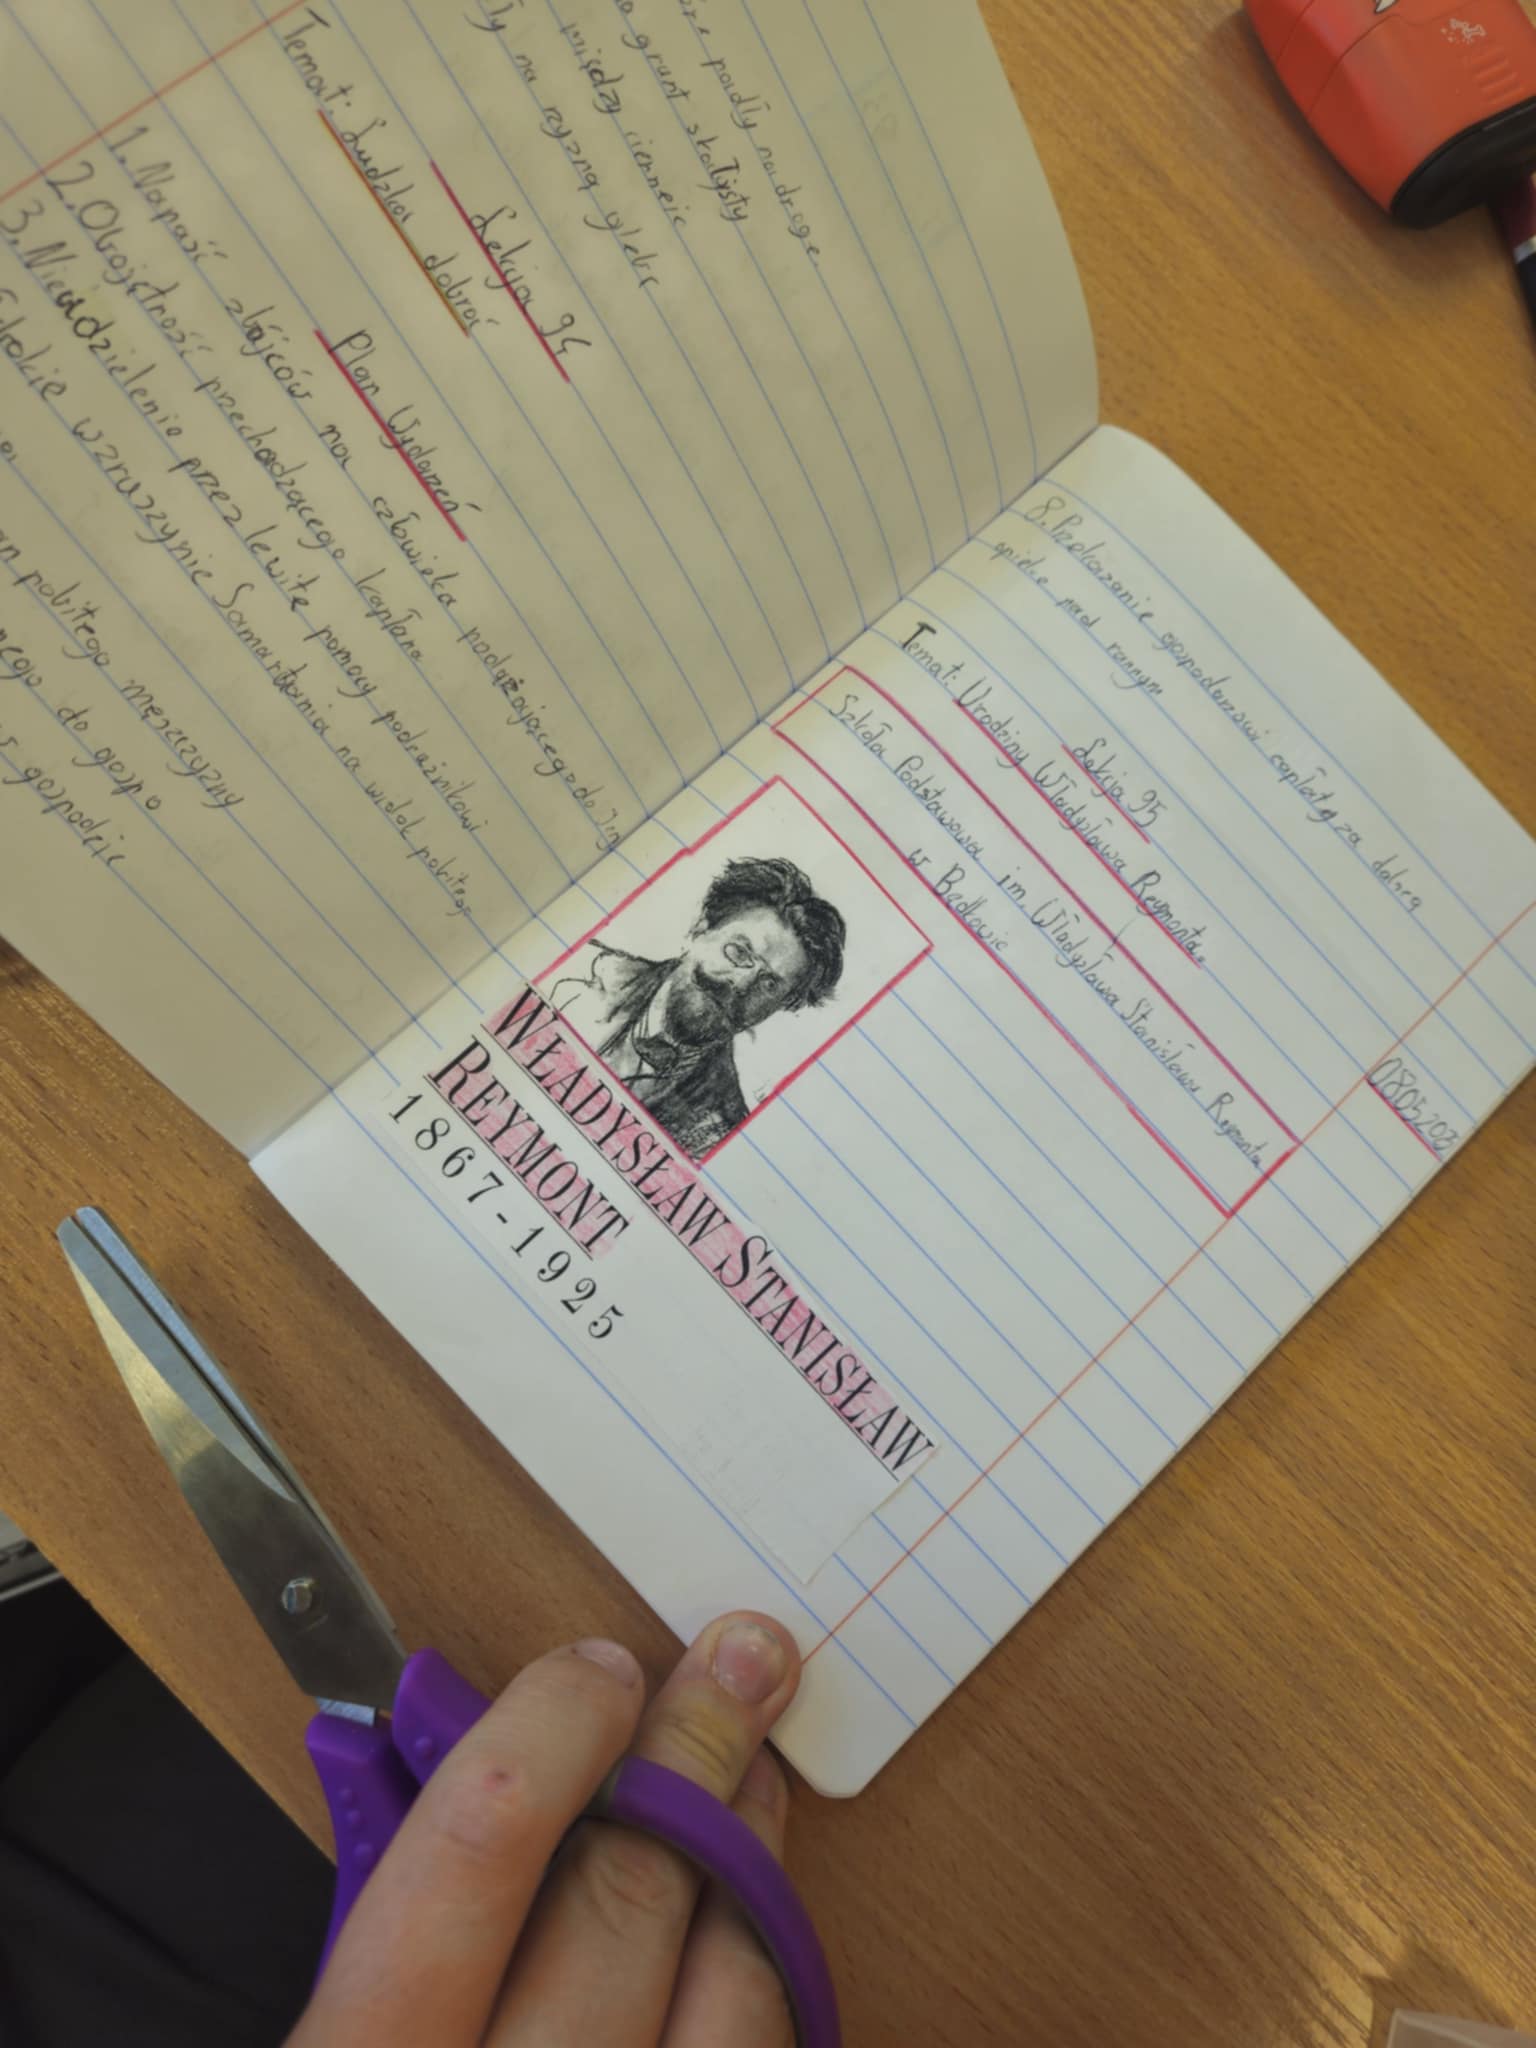 na drogę.
na grunt skalisty
między ciernie
na żyzną glebę
Lekcja 94
Temat: Ludzka dobroć
Plan Wydarzeń
1. Napaść zbójców na człowieka podążającego do
2. Obojętność przechodzącego kapłana
3. Nieudzielenie przez lewitę pomocy podróżnikowi
wzruszynie Samartania na widok pobitego
pobitego męszczyzny
do gospo
gospodzie
8. Przekazanie gospodarzowi zapłaty za dobrą
opiekę nad rannym
08052023
Lekcja 95
Temat: Urodziny Władysława Reymonta.
Szkoła Podstawowa im. Władysława Stanisława Reymonta
w Będkowie
WŁADYSŁAW STANISŁAW
REYMONT
1867-1925